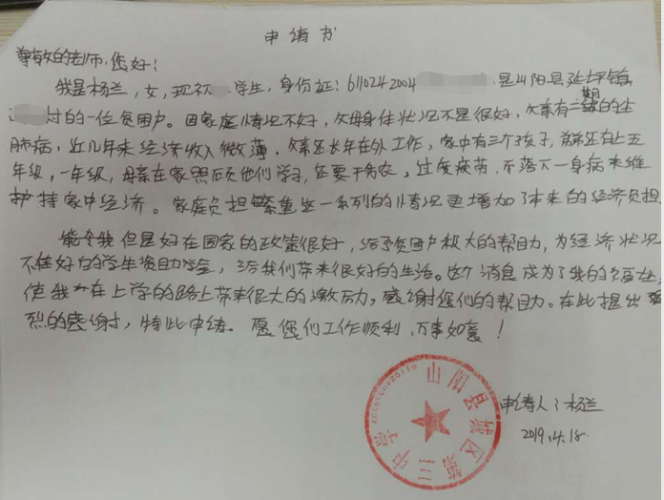 申请书
尊敬的老师,您好!
我是杨兰,女,现初 学生,身份证:6110242004 是山阳县延坪镇
村的一位贫困户。因家庭情况不好,父母身体状况不是很好,父亲有二期的尘
肺病,近几年来经济收入微薄。父亲还长年在外工作,家中有三个孩子,弟弟还在上五
年级,一年级,母亲在家照顾他们学习,还要干务农,过度疲劳,不落下一身病来维
护持家中经济。家庭负担繁重些一系列的情况更增加了本来的经济负担
但是好在国家的政策很好,给予贫困户极大的帮助,为经济状况
不佳好的学生资助学金,给我们带来很好的生活。这个消息成为了我的
使我在上学的路上带来很大的激励,感谢您们的帮助。在此提出
烈的感谢,特此申请。愿您们工作顺利,万事如意!
山阳县城区第三中学
申请人:杨兰
2019.4.18